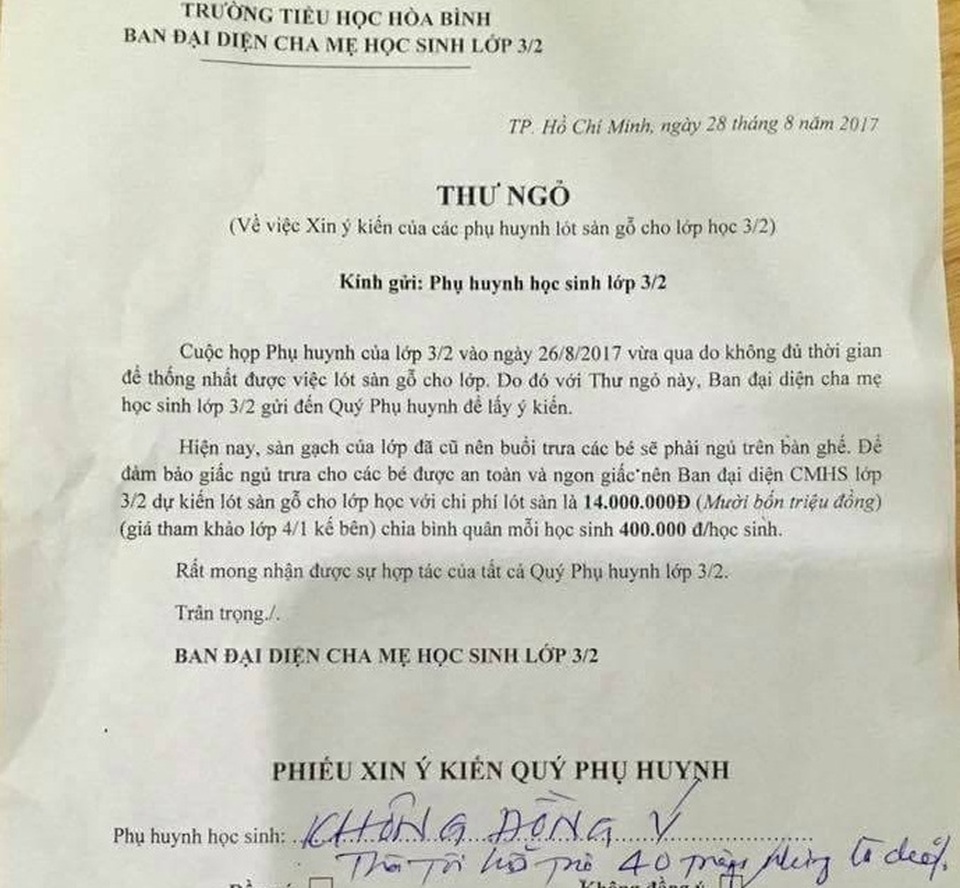 TRƯỜNG TIỂU HỌC HÒA BÌNH
BAN ĐẠI DIỆN CHA MẸ HỌC SINH LỚP 3/2
TP. Hồ Chí Minh, ngày 28 tháng 8 năm 2017
THƯ NGỎ
(Về việc Xin ý kiến của các phụ huynh lót sàn gỗ cho lớp học 3/2)
Kính gửi: Phụ huynh học sinh lớp 3/2
Cuộc họp Phụ huynh của lớp 3/2 vào ngày 26/8/2017 vừa qua do không đủ thời gian
để thống nhất được việc lót sàn gỗ cho lớp. Do đó với Thư ngỏ này, Ban đại diện cha mẹ
học sinh lớp 3/2 gửi đến Quý Phụ huynh để lấy ý kiến.
Hiện nay, sàn gạch của lớp đã cũ nên buổi trưa các bé sẽ phải ngủ trên bàn ghế. Để
đảm bảo giấc ngủ trưa cho các bé được an toàn và ngon giấc nên Ban đại diện CMHS lớp
3/2 dự kiến lót sàn gỗ cho lớp học với chi phí lót sàn là 14.000.000Đ (Mười bốn triệu đồng)
(giá tham khảo lớp 4/1 kế bên) chia bình quân mỗi học sinh 400.000 đ/học sinh.
Rất mong nhận được sự hợp tác của tất cả Quý Phụ huynh lớp 3/2.
Trân trọng./.
BAN ĐẠI DIỆN CHA MẸ HỌC SINH LỚP 3/2
PHIẾU XIN Ý KIẾN QUÝ PHỤ HUYNH
Phụ huynh học sinh: KHÔNG ĐỒNG Ý
40
Không đồng ý